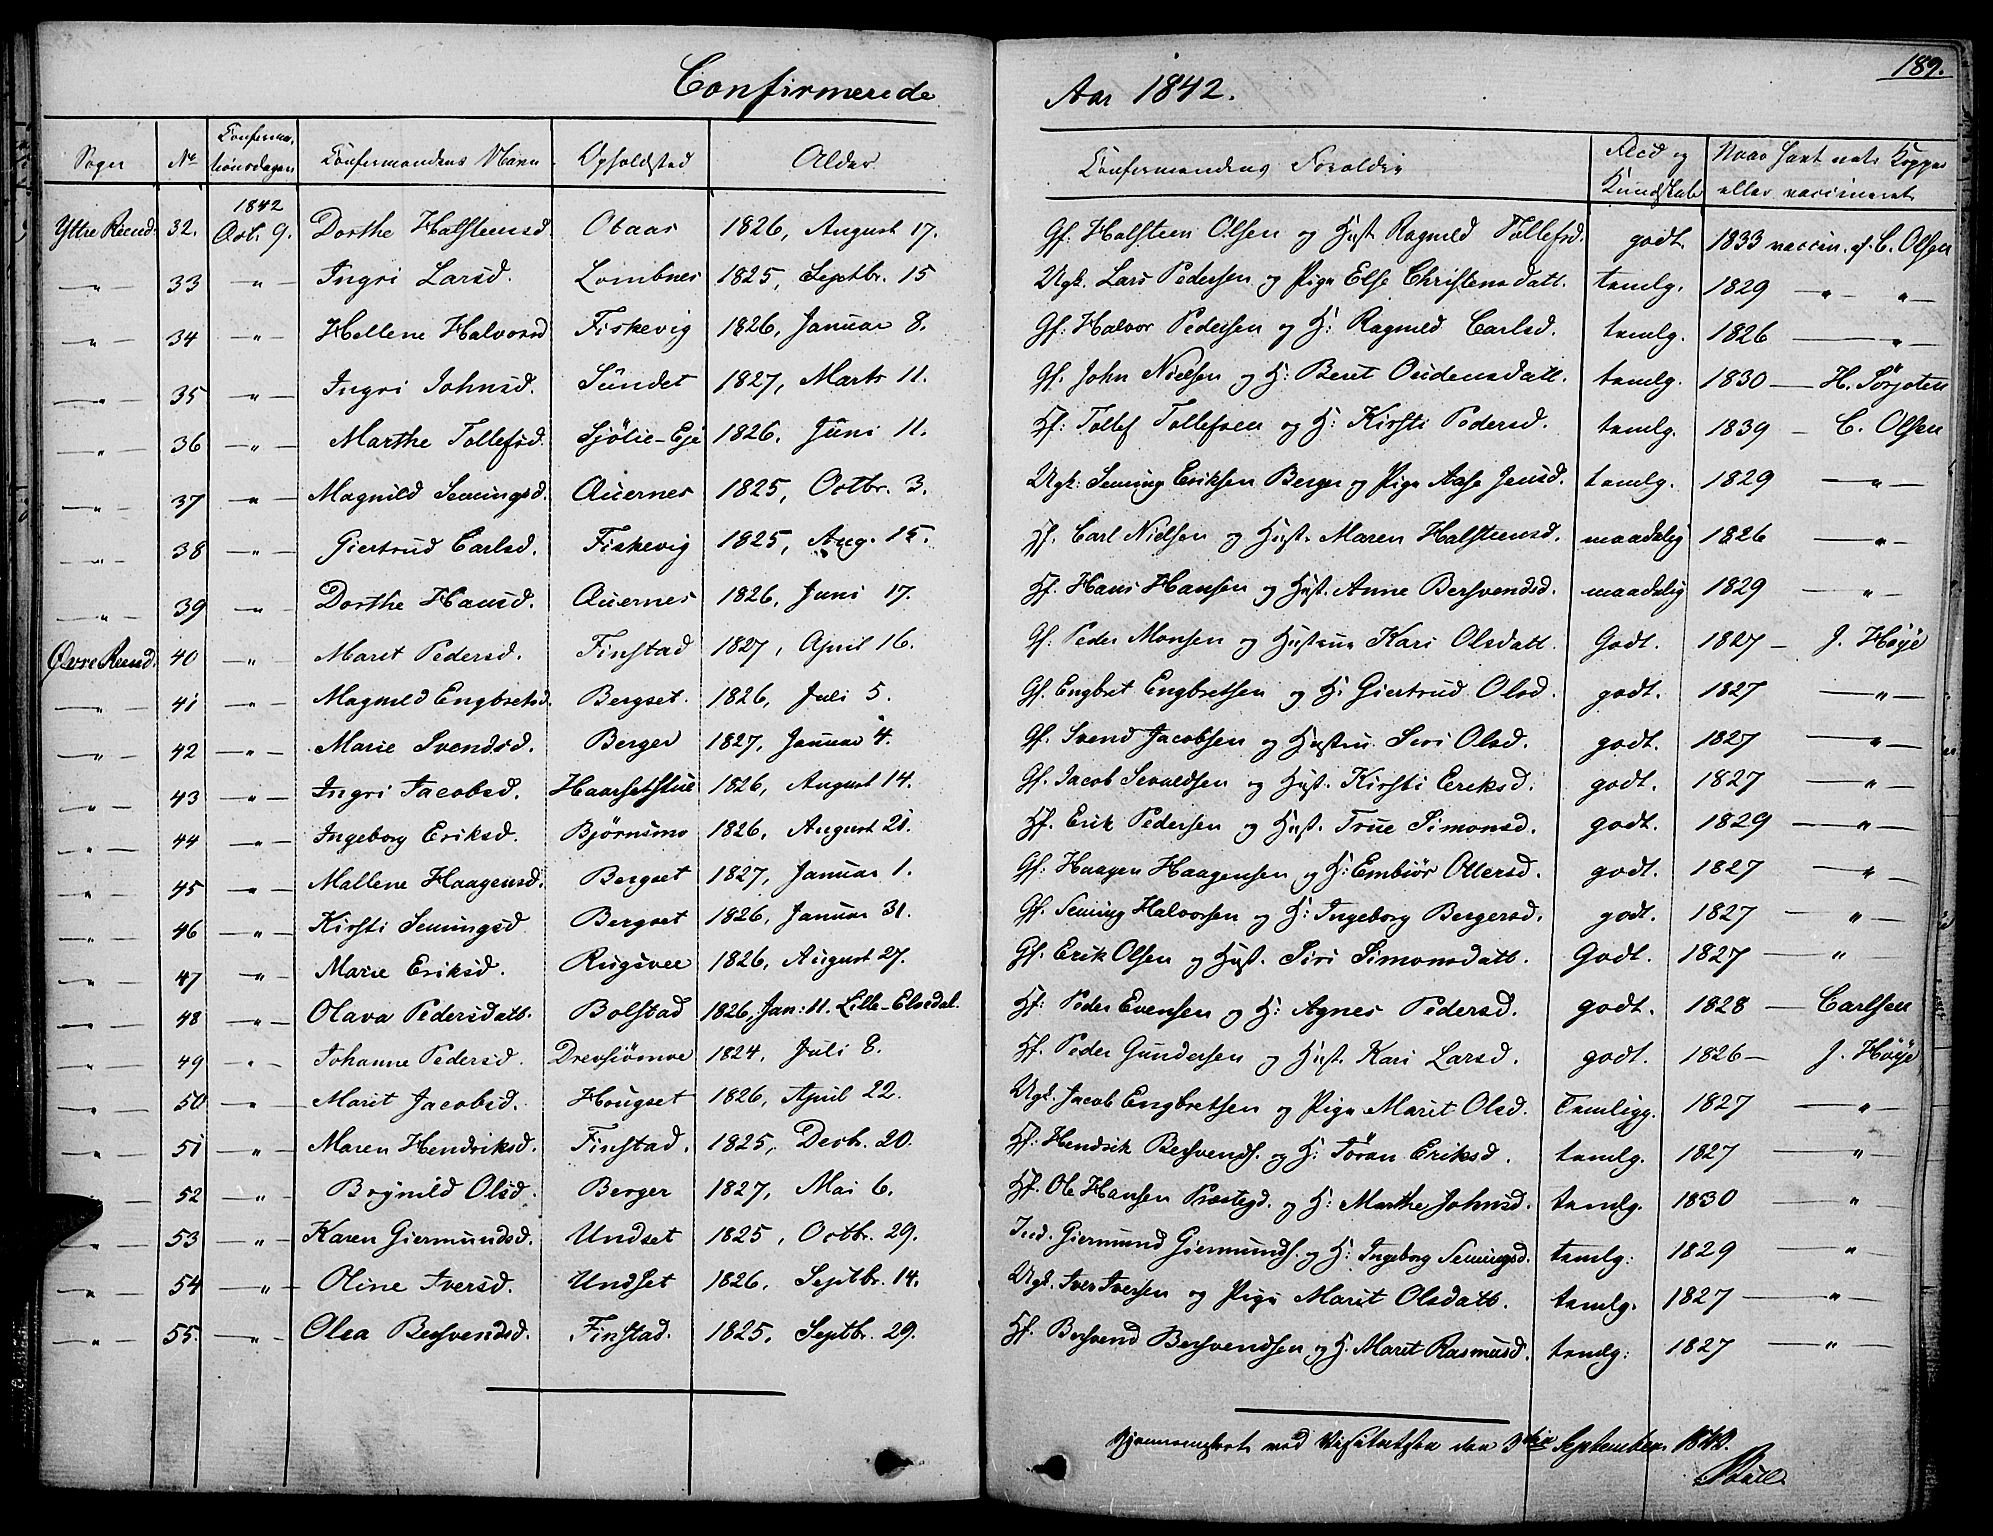 189.
Confirmerede Aar 1842.
Sogn | No | Confirmationsdagen | Confirmandens Navn | Opholdsted | Alder | Confirmandens Forældre | Flid og Kundskab | Naar havt nat. Kopper eller vaccineret
Yttre Rend. | 32. | 1842 Oct. 9. | Dorthe Halsteensd | Obaas | 1826, August 17. | Gf. Halsteen Olsen og Hust. Ragnild Tollefsd. | godt | 1833 vaccin. af C. Olsen
—"— | 33 | —"— | Ingri Larsd. | Lombnes | 1825, Septbr. 15 | Ugk. Lars Pedersen og Pige Else Christensdatt. | tamlg. | 1829 —"— "—
—"— | 34 | —"— | Hellene Halvorsd | Fiskevig | 1826, Januar 8. | Gf. Halvor Pedersen og H: Ragnild Carlsd. | tamlg. | 1826 —"—
—"— | 35 | —"— | Ingri Johnsd. | Sundet | 1827, Marts 11. | Gf. John Nielsen og H: Beret Oudensdatt. | tamlg. | 1830 — H. Sørjoten
—"— | 36 | —"— | Marthe Tollefsd. | Sjölie-Eje | 1826. Juni 11. | Hf: Tollef Tollefsen og H: Kirsti Pedersd. | tamlg. | 1839 — C. Olsen
—"— | 37 | —"— | Magnild Semingsd. | Auernes | 1825, Octbr. 3. | Ugk: Seming Eriksen Berger og Pige Aase Jensd. | tamlg. | 1829 —"—
—"— | 38 | —"— | Giertrud Carlsd. | Fiskevig | 1825, Aug. 15. | Hf. Carl Nielsen og Hust. Maren Halsteensd. | maadelig | 1826 —"—
—"— | 39 | —"— | Dorthe Hansd. | Auernes | 1826, Juni 17. | Hf. Hans Hansen og Hust. Anne Bersvendsd. | maadelig | 1829 —"—
Øvre Rend. | 40 | —"— | Marit Pedersd. | Finstad | 1827, April 16. | Gf. Peder Monsen og Hustrue Kari Olsdatt. | Godt. | 1827 — J. Høye
—"— | 41 | —"— | Magnild Engbretsd. | Bergset. | 1826, Juli 5. | Gf. Engbret Engbretsen og H: Giertrud Olsd. | godt. | 1827 —"—
—"— | 42 | —"— | Marie Svendsd. | Berger | 1827, Januar 4. | Gf. Svend Jacobsen og Hustru Siri Olsd. | godt. | 1827 —"—
—"— | 43 | —"— | Ingri Jacobsd. | Haarsetstue | 1826, August 14. | Gf. Jacob Sevaldsen og Hust. Kirsti Eriksd. | godt. | 1827 —"—
—"— | 44 | —"— | Ingeborg Eriksd. | Bjørnsmo | 1826, August 21. | Hf. Erik Pedersen og Hust. True Simonsd. | godt. | 1829 —"—
—"— | 45 | —"— | Mallene Haagensd. | Bergset | 1827, Januar 1. | Gf: Haagen Haagensen og H: Embiør Ottersd. | godt. | 1827 —"—
—"— | 46 | —"— | Kirsti Semingsd | Bergset | 1826, Januar 31. | Gf. Seming Halvorsen og H: Ingeborg Bergersd. | godt. | 1827 —"—
—"— | 47 | —"— | Marie Eriksd. | Rugsvee | 1826, August 27. | Gf. Erik Olsen og Hust. Siri Simonsdatt. | Godt. | 1827 —"—
—"— | 48 | —"— | Olava Pedersdatt. | Bolstad | 1826, Jan: 11. Lille-Elvedal. | Hf: Peder Evensen og H: Agnes Pedersd. | godt. | 1828 — Carlsen
—"— | 49 | —"— | Johanne Pedersd. | Drevsiömoe | 1824, Juli 8. | Hf. Peder Gundersen og Hust. Kari Larsd. | godt. | 1826 — J. Høye
—"— | 50 | —"— | Marit Jacobsd. | Hougset | 1826, April 22. | Ugk. Jacob Engbretsen og Pige Marit Olsd. | Tamligg. | 1827 —"—
—"— | 51 | —"— | Maren Hendriksd. | Finstad. | 1825, Decb. 20. | Hf: Hendrik Bersvends. og H: Töran Eriksd. | tamlg. | 1827 —"—
—"— | 52 | —"— | Brynild Olsd. | Berger | 1827, Mai 6. | Hf. Ole Hansen Præstegd. og H: Marthe Johnsd. | tamlg. | 1830 —"—
—"— | 53 | —"— | Karen Giermundsd. | Undset | 1825, Octbr. 29. | Ind. Giermund Giermunds. og H: Ingeborg Semingsd. | tamlg: | 1829 —"—
—"— | 54 | —"— | Oline Iversd. | Undset | 1826, Septbr. 14. | Ugk. Iver Iversen og Pige Marit Olsdatt. | tamlg. | 1827 —"—
—"— | 55. | —"— | Olea Bersvendsd. | Finstad. | 1825, Septbr. 29. | Hf. Bersvend Bersvendsen og H. Marit Rasmusd. | tamlg: | 1827 —"—
Gjennemseet ved Visitatsen den 3die September